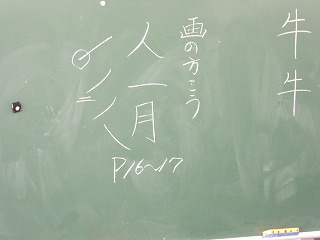 牛
牛
画の方こう
人一月
P16〜17